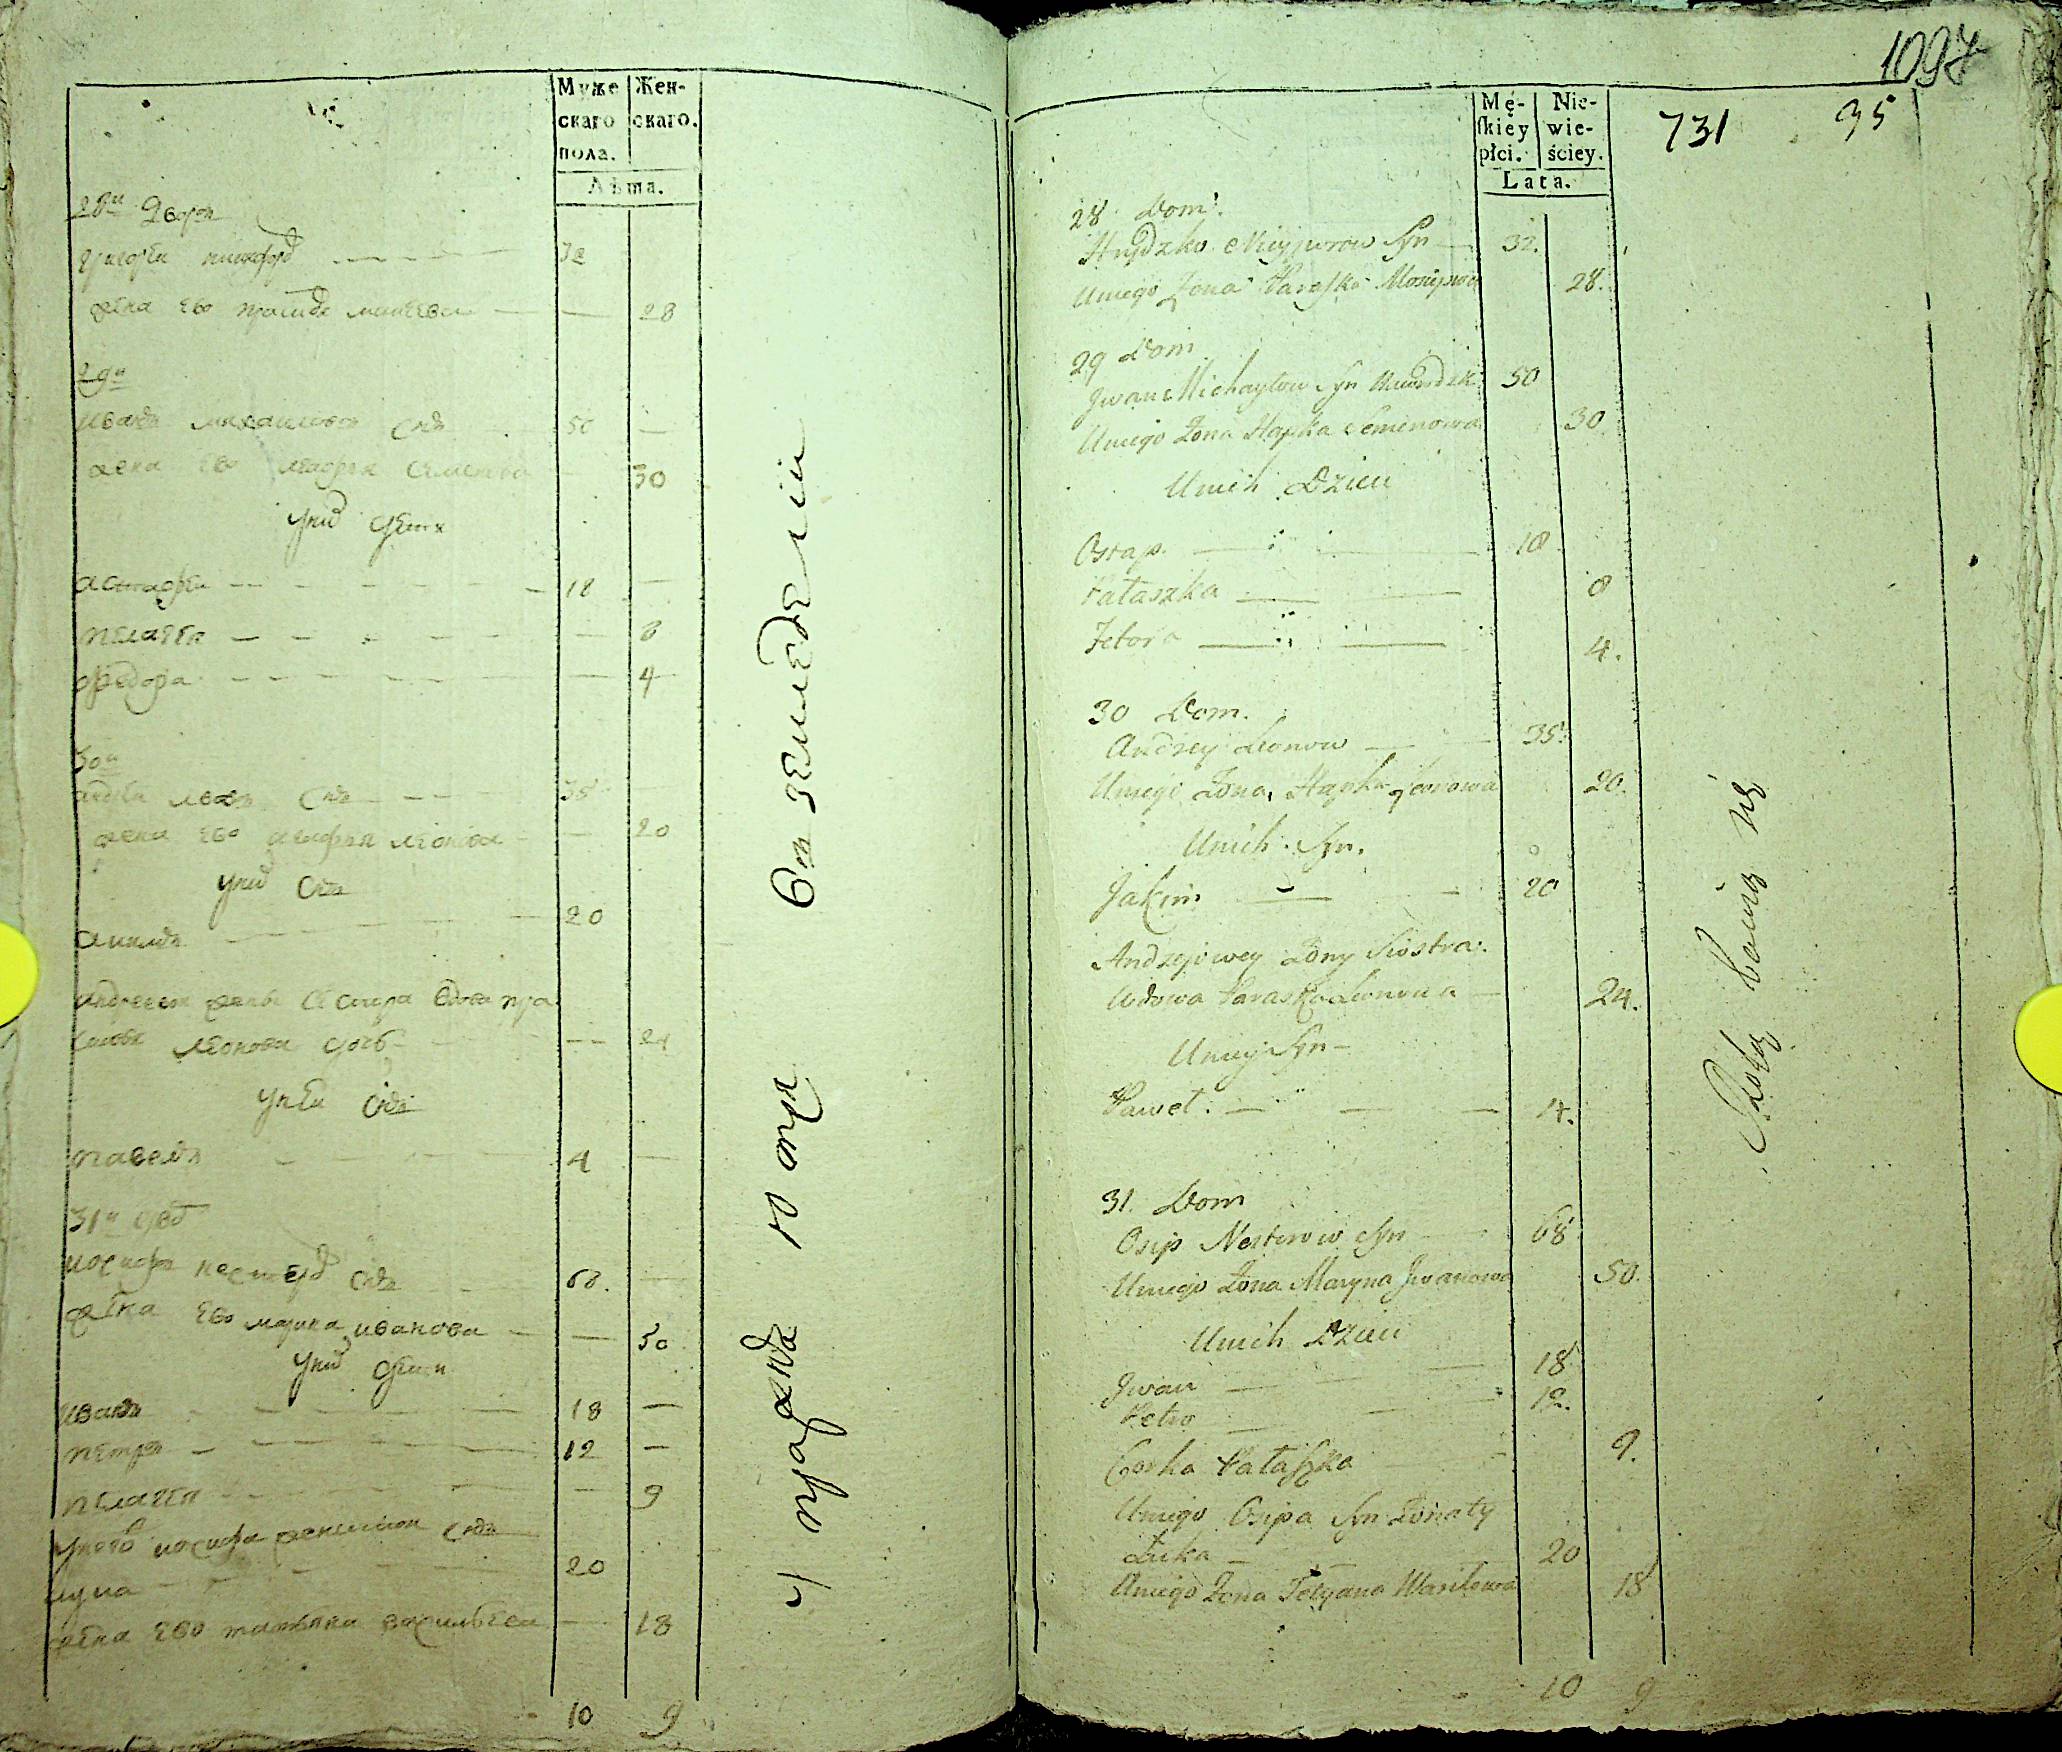 Муже
скаго
пола.
Жен-
скаго.
Лѣта.
28й Дворъ
32
жена ево 28
29й
иванъ михаиловъ снъ 50
жена ево агафия семенова 30
у них дети
астафеи 18
пелагея 8
федора 4
30й
андреи снъ 35
жена ево агафия леонова 20
у них снъ
акимъ 20
андреевои жены сестра вдова пра
сковя леонова дочь 24
у неи снъ
павелъ 4
31й двор
иосифъ нестеров снъ 68.
жена ево марина иванова 50
у них дети
иванъ 18
петръ 12
пелагея 9
у того иосифа снъ
лука 20
жена ево татьяна васильева 18
10 9
в земледелии
1097
731 95
Mę-
skiey
płci.
Nie-
wie-
ściey.
Lata.
28 Dom.
Hrydzko Syn 32.
Uniego Żona Paraska 28.
29 Dom
Jwan Michayłow Syn 50
Uniego Żona Hapka Semenowa 30
Unich Dzieci
Ostap 18
Pałaszka 8
Fetora 4.
30 Dom.
Andrzey Leonow 35.
Uniego Żona Hapka Leonowa 20.
Unich Syn.
Jakim 20
Andrzejowey Żony Siostra
Wdowa Paraska Leonowa 24.
Uniey Syn
Paweł. 4.
31. Dom
Osip Nesterow Syn 68
Uniego Żona Maryna Jwanowa 50.
Unich Dzieci
Jwan 18
Petro 12.
Corka Pałaszka 9.
Uniego Osipa Syn Żonaty
Łuka 20
Uniego Żona Tetyana Wasilowa 18
10 9